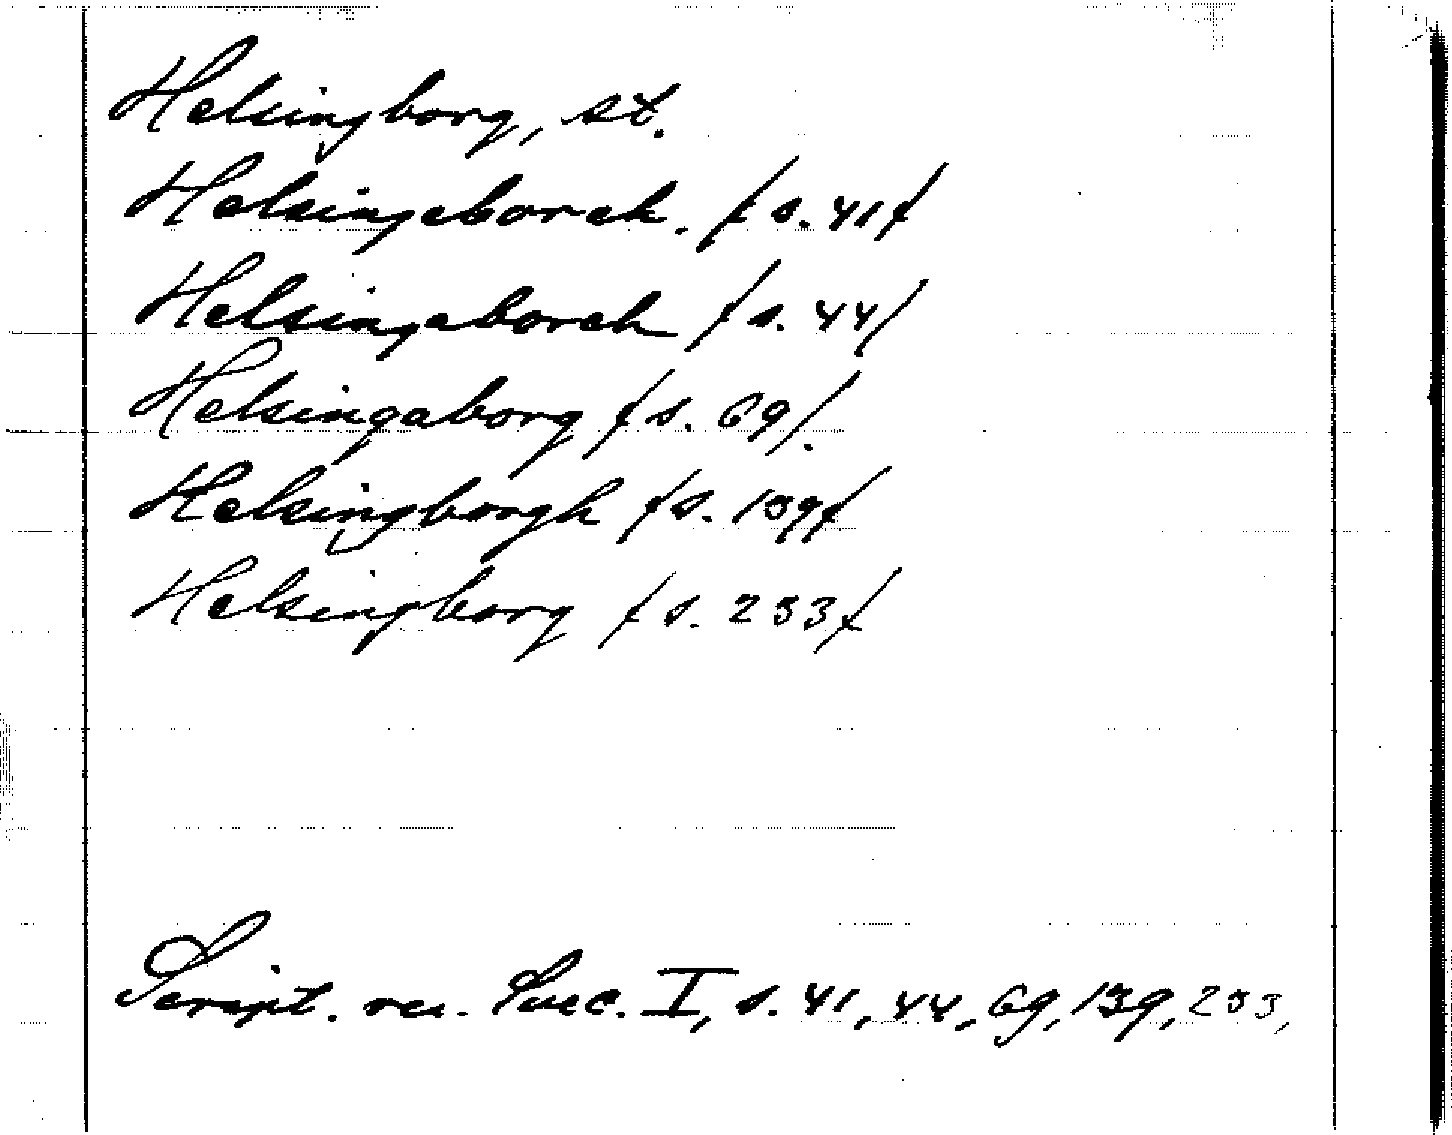 Helsingborg, st.
Helsingeborch. (s. 41)
Helsingaborch (s. 44)
Helsingaborg (s. 69).
Helsingborgh (s. 139)
Helsingborg (s. 233)
Script. rer. Suec. I, s. 41, 44, 69, 139, 233,